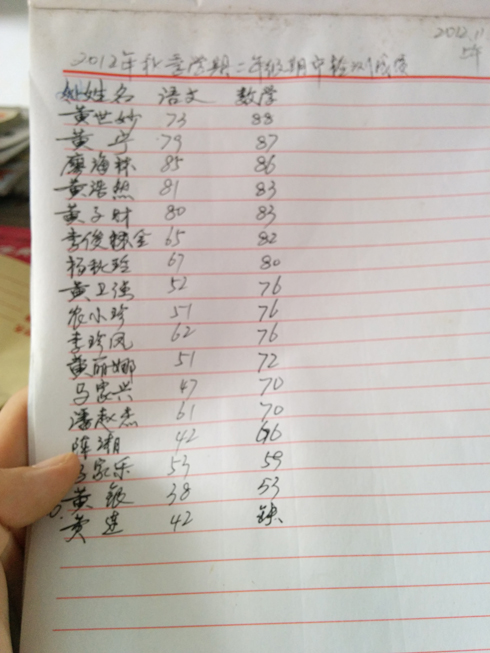 2012.11.
2012年秋季学期二年级期中检测成绩
姓名 语文 数学
黄世妙 73 88
黄宇 79 87
廖海林 85 86
黄浩然 81 83
黄子财 80 83
李俊 65 82
杨秋玲 67 80
黄卫强 52 76
农小珍 51 76
李玲凤 62 76
黄丽娜 51 72
马家兴 47 70
潘赵杰 61 70
陈湘 42 66
家乐 53 59
黄敏 38 53
黄建 42 缺